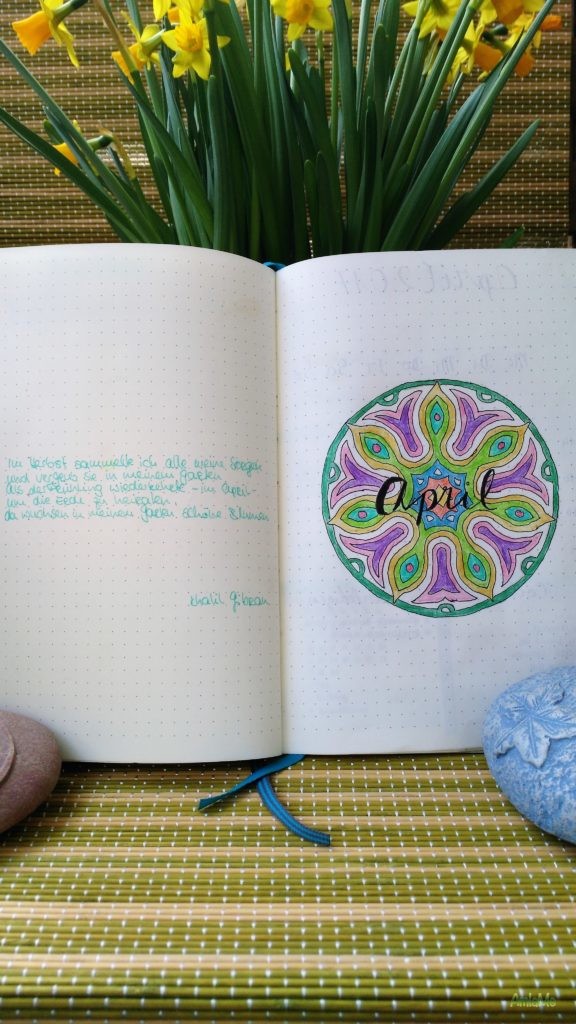 Im Herbst sammelte ich alle meine Sorgen
und vergrub sie in meinem Garten
Als der Frühling wiederkehrte - im April -
um die Erde zu heiraten
da wuchsen in meinem Garten schöne Blumen
Khalil Gibran
April
April 2017